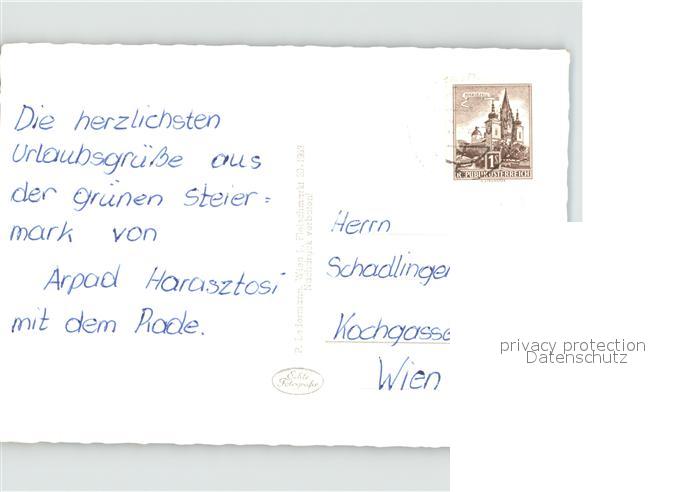 Die herzlichsten
Urlaubsgrüße aus
der grünen Steier=
mark von
Arpad Harasztosi
mit dem Rade.
Wien I., Fleischmarkt
Nachdruck verboten!
Echte
Fotografie
MARIAZELL
1S
REPUBLIK ÖSTERREICH
Herrn
Schadlinger
Kochgasse
Wien
privacy protection
Datenschutz